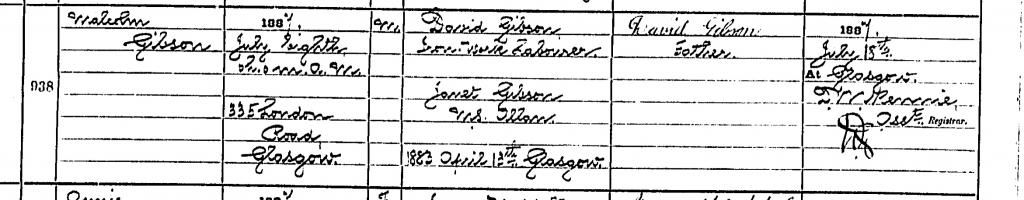 938
Malcolm
Gibson
1887,
July Eighth
5h. 0m. A.M.
335 London
Road,
Glasgow.
M.
David Gibson
Iron-work Labourer.
Janet Gibson
M.S. Allan
1883 April 13th Glasgow.
David Gibson
Father.
1887,
July 15th
At Glasgow.
Rennie,
Registrar.
Annie